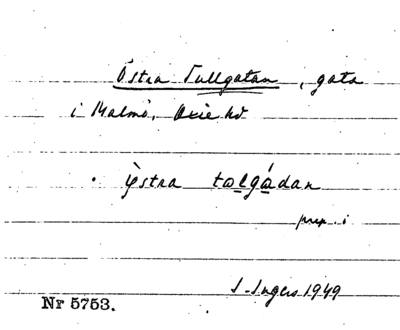 Östra Tullgatan, gata
i Malmö, Oxie hd
. ỳstra talgá̱dan
prep. i
I. Ingers 1949
Nr 5753.